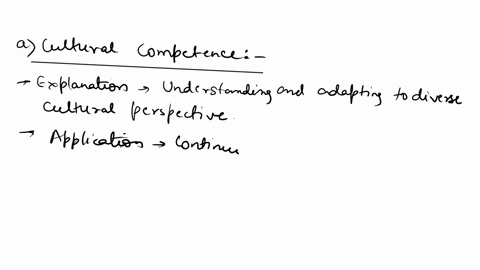 a) Cultural Competence:-
→ Explanation → Understanding and adapting to diverse
cultural perspective.
→ Application → Continu